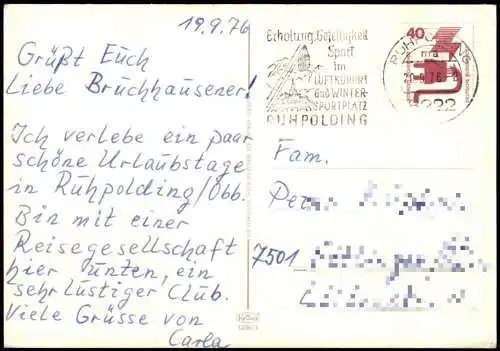 19.9.76
Grüßt Euch
Liebe Bruchhausener!
Ich verlebe ein paar
schöne Urlaubstage
in Ruhpolding/Obb.
Bin mit einer
Reisegesellschaft
hier unten, ein
sehr lustiger Club.
Viele Grüsse von
Carla
Erholung, Geselligkeit
Sport
im
LUFTKURORT
und WINTER-
SPORTPLATZ
RUHPOLDING
40
RUHPOLDING
20.9.76
8222
Fam.
7501